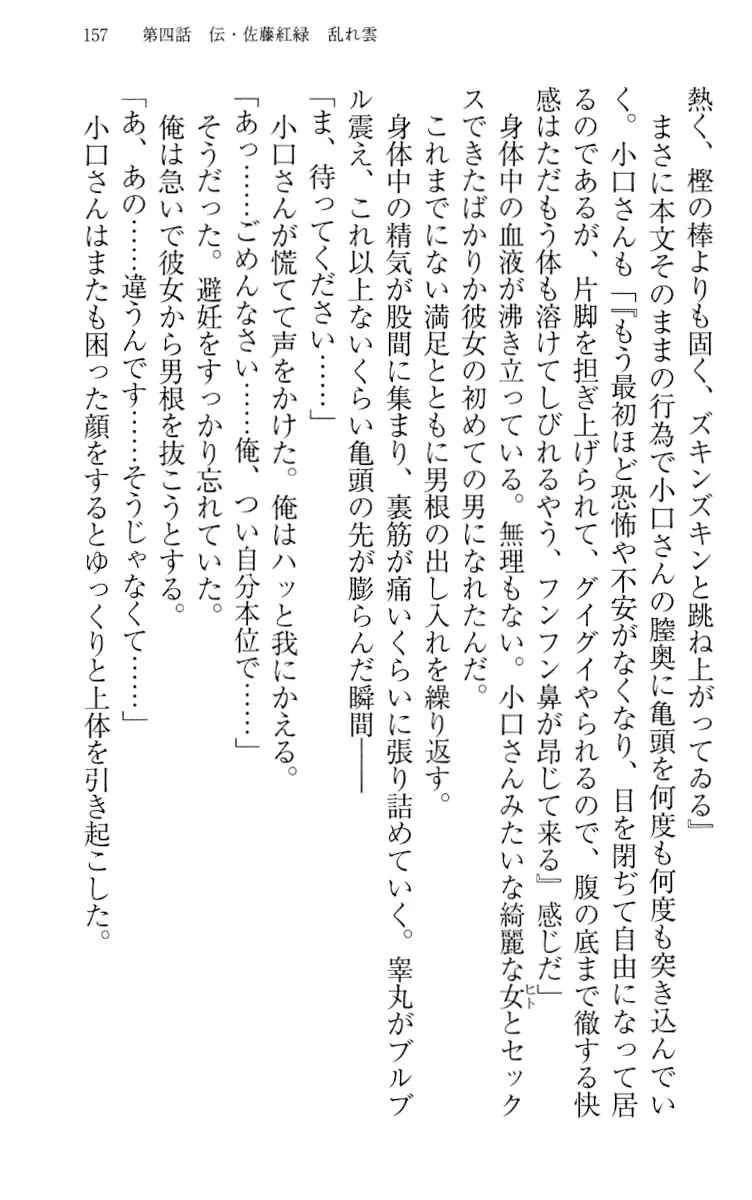 157　第四話　伝・佐藤紅緑　乱れ雲
熱く、樫の棒よりも固く、ズキンズキンと跳ね上がってゐる』
　まさに本文そのままの行為で小口さんの膣奥に亀頭を何度も何度も突き込んでい
く。小口さんも「『もう最初ほど恐怖や不安がなくなり、目を閉ぢて自由になって居
るのであるが、片脚を担ぎ上げられて、グイグイやられるので、腹の底まで徹する快
感はただもう体も溶けてしびれるやう、フンフン鼻が昂じて来る』感じだ」
　身体中の血液が沸き立っている。無理もない。小口さんみたいな綺麗な女ヒトとセック
スできたばかりか彼女の初めての男になれたんだ。
　これまでにない満足とともに男根の出し入れを繰り返す。
　身体中の精気が股間に集まり、裏筋が痛いくらいに張り詰めていく。睾丸がブルブ
ル震え、これ以上ないくらい亀頭の先が膨らんだ瞬間――
「ま、待ってください……」
　小口さんが慌てて声をかけた。俺はハッと我にかえる。
「あっ……ごめんなさい……俺、つい自分本位で……」
　そうだった。避妊をすっかり忘れていた。
　俺は急いで彼女から男根を抜こうとする。
「あ、あの……違うんです……そうじゃなくて……」
　小口さんはまたも困った顔をするとゆっくりと上体を引き起こした。